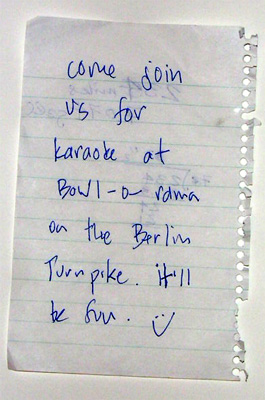 come join
us for
karaoke at
Bowl-o-rama
on the Berlin
Turnpike. it'll
be fun. :)